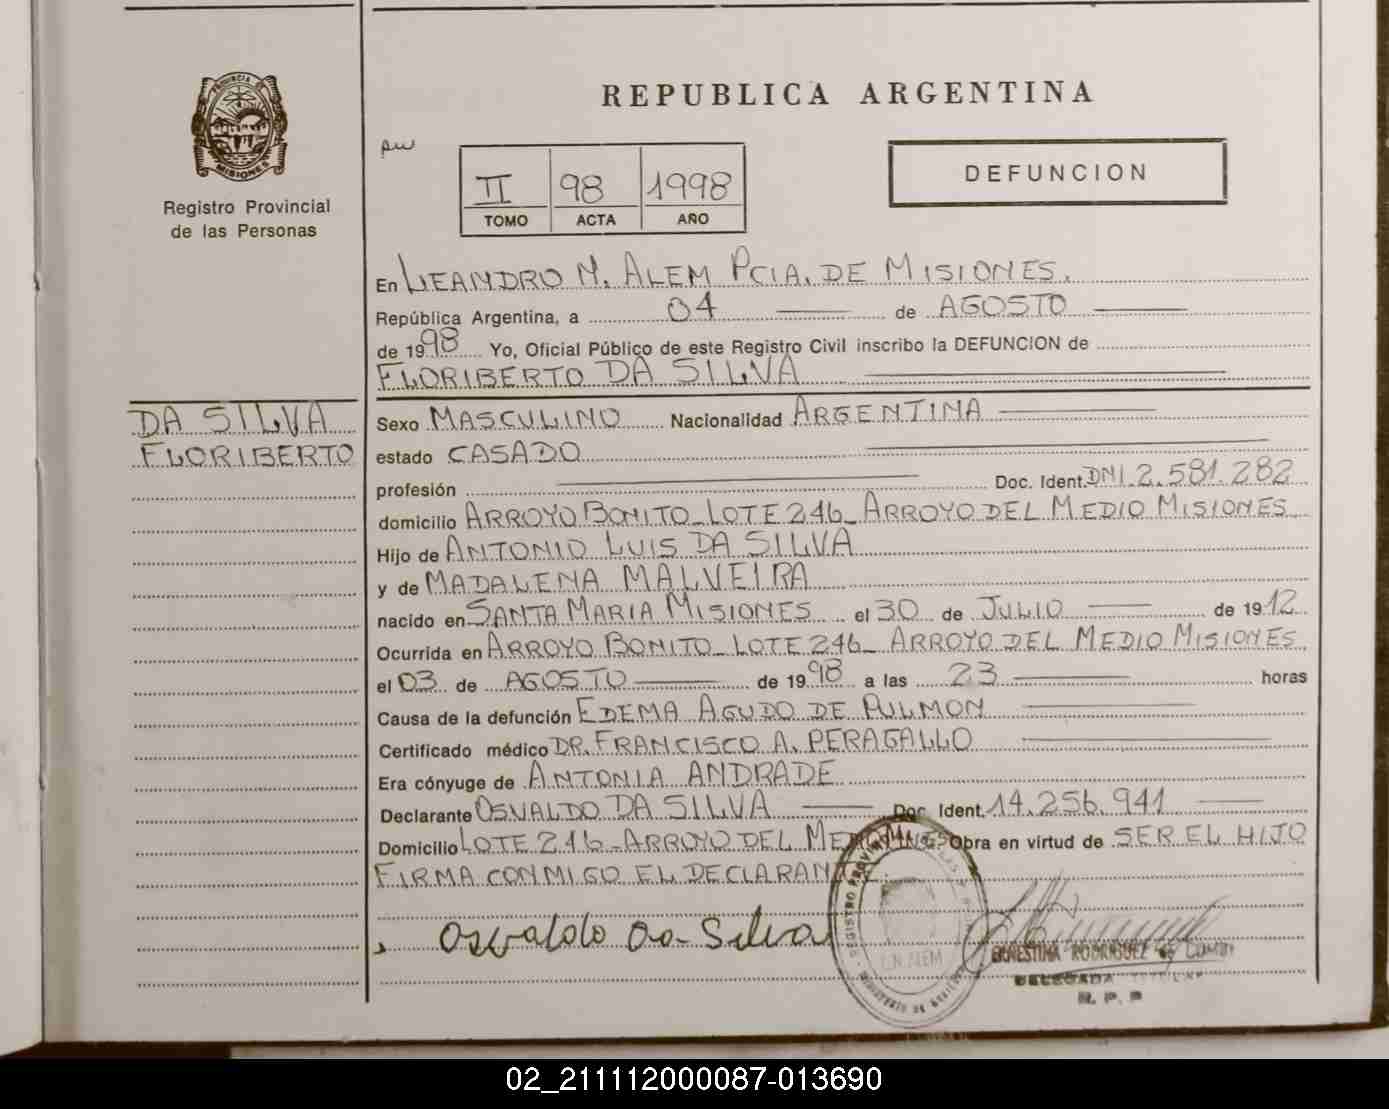 PROVINCIA DE
MISIONES
Registro Provincial
de las Personas
REPUBLICA ARGENTINA
II 98 1998
TOMO ACTA AÑO
DEFUNCION
En LEANDRO N. ALEM PCIA. DE MISIONES.
República Argentina, a 04 de AGOSTO
de 1998 Yo, Oficial Público de este Registro Civil inscribo la DEFUNCION de
FLORIBERTO DA SILVA
DA SILVA
FLORIBERTO
Sexo MASCULINO Nacionalidad ARGENTINA
estado CASADO
profesión Doc. Ident. DNI. 2.581.282
domicilio ARROYO BONITO_LOTE 246_ARROYO DEL MEDIO MISIONES
Hijo de ANTONIO LUIS DA SILVA
y de MADALENA MALVEIRA
nacido en SANTA MARIA MISIONES el 30 de JULIO de 1912
Ocurrida en ARROYO BONITO_LOTE 246_ARROYO DEL MEDIO MISIONES.
el 03 de AGOSTO de 1998 a las 23 horas
Causa de la defunción EDEMA AGUDO DE PULMON
Certificado médico DR. FRANCISCO A. PERAGALLO
Era cónyuge de ANTONIA ANDRADE
Declarante OSVALDO DA SILVA Doc. Ident. 14.256.941
Domicilio LOTE 246-ARROYO DEL MEDIO MNES. Obra en virtud de SER EL HIJO
FIRMA CONMIGO EL DECLARANTE
Osvaldo Da Silva
REGISTRO PROVINCIAL DE LAS
L.N. ALEM
ERNESTINA RODRIGUEZ de
DELEGADA TITULAR
R. P. P
02_211112000087-013690